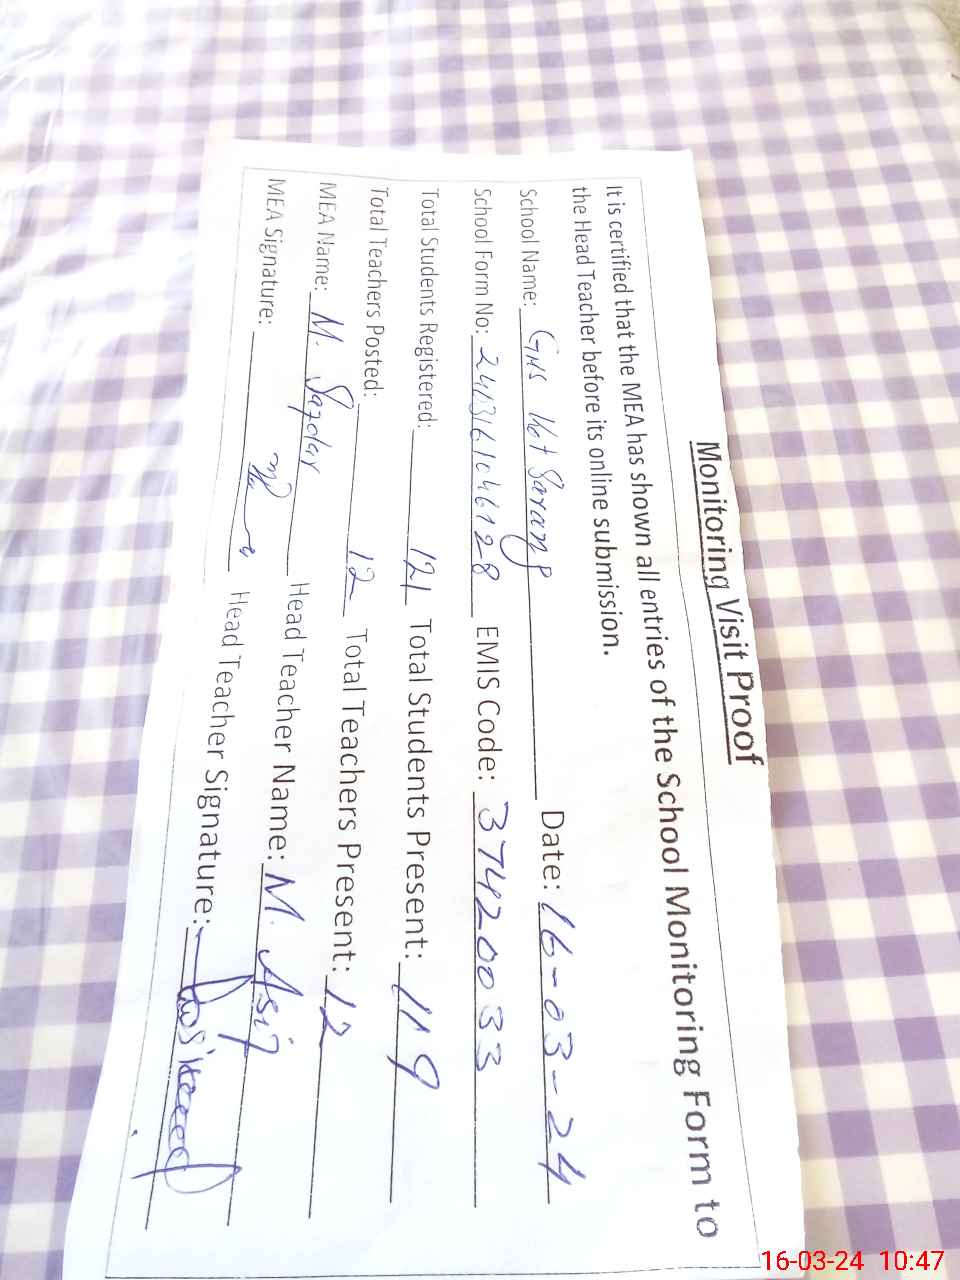 Monitoring Visit Proof
It is certified that the MEA has shown all entries of the School Monitoring Form to
the Head Teacher before its online submission.
School Name: GHS Kot Sarang Date: 16-03-24
School Form No: EMIS Code: 37420033
Total Students Registered: 121 Total Students Present: 119
Total Teachers Posted: 12 Total Teachers Present: 12
MEA Name: M. Head Teacher Name: M. Asif
MEA Signature: Head Teacher Signature:
16-03-24 10:47